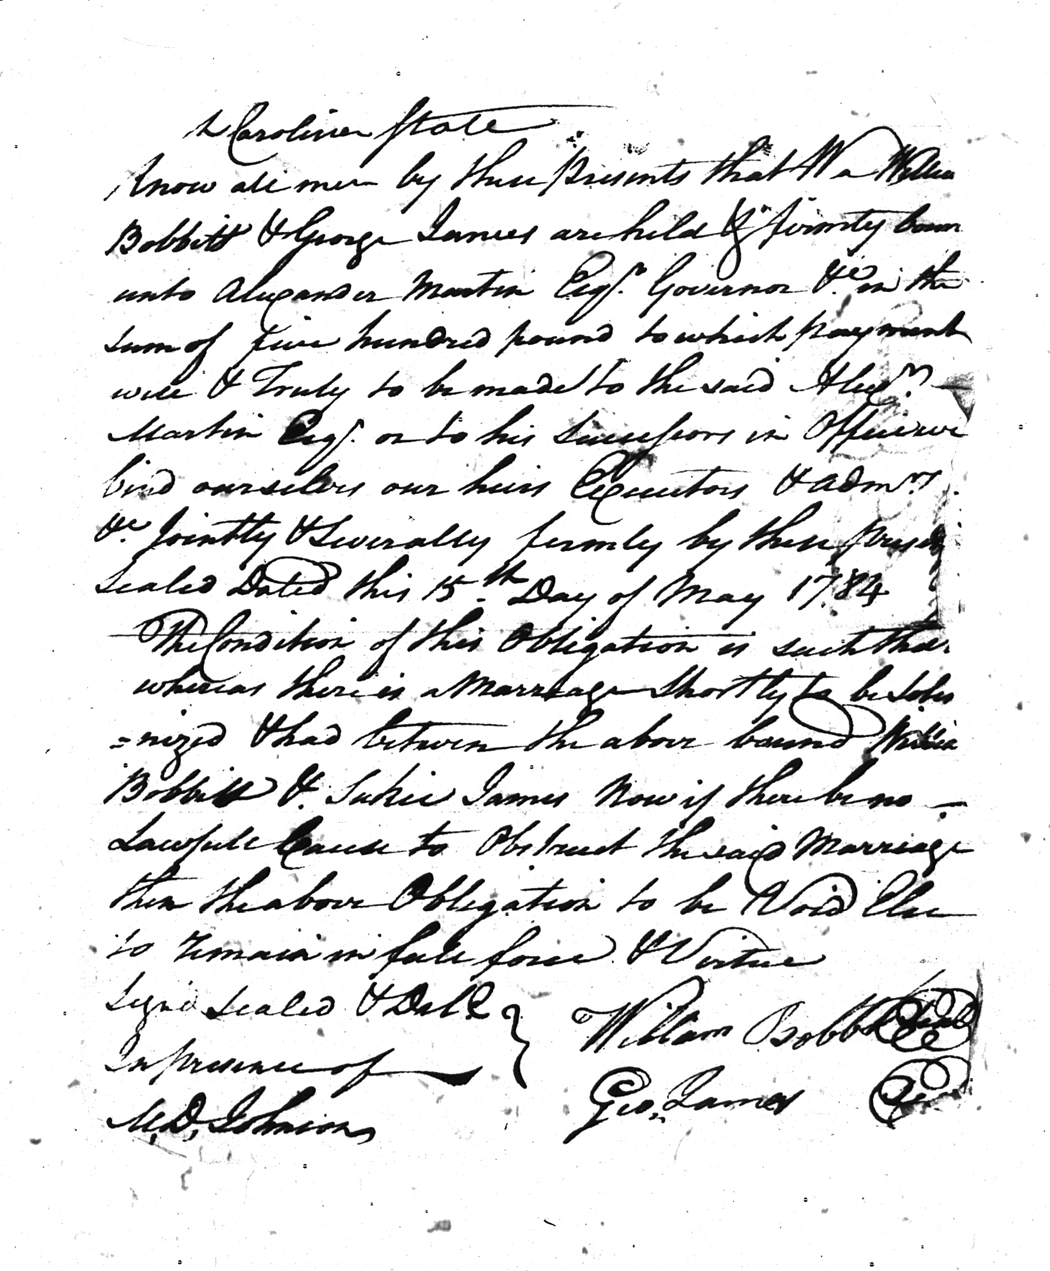 N Carolina State
Know all men by these Presents that We William
Bobbitt & George James are held & firmly boun
unto Alexander Martin Esqr. Governor &c in the
sum of five hundred pound to which payment
well & Truly to be made to the said Alexr.
Martin Esqr. or to his Successors in Office we
bind ourselves our heirs Executors & Admrs.
&c Jointly & Severally firmly by these presents
Sealed Dated this 15th Day of May 1784
The Condition of this Obligation is such that
whereas there is a Marriage Shortly to be Solem
=nized & had between the above bound William
Bobbitt & Sukie James Now if there be no
Lawfull Cause to Obstruct the said Marriage
then the above Obligation to be Void Else
to remain in full force & Virtue
Signd Sealed & Deld
In presence of
M.D. Johnson
William Bobbitt Seal
Geo. James